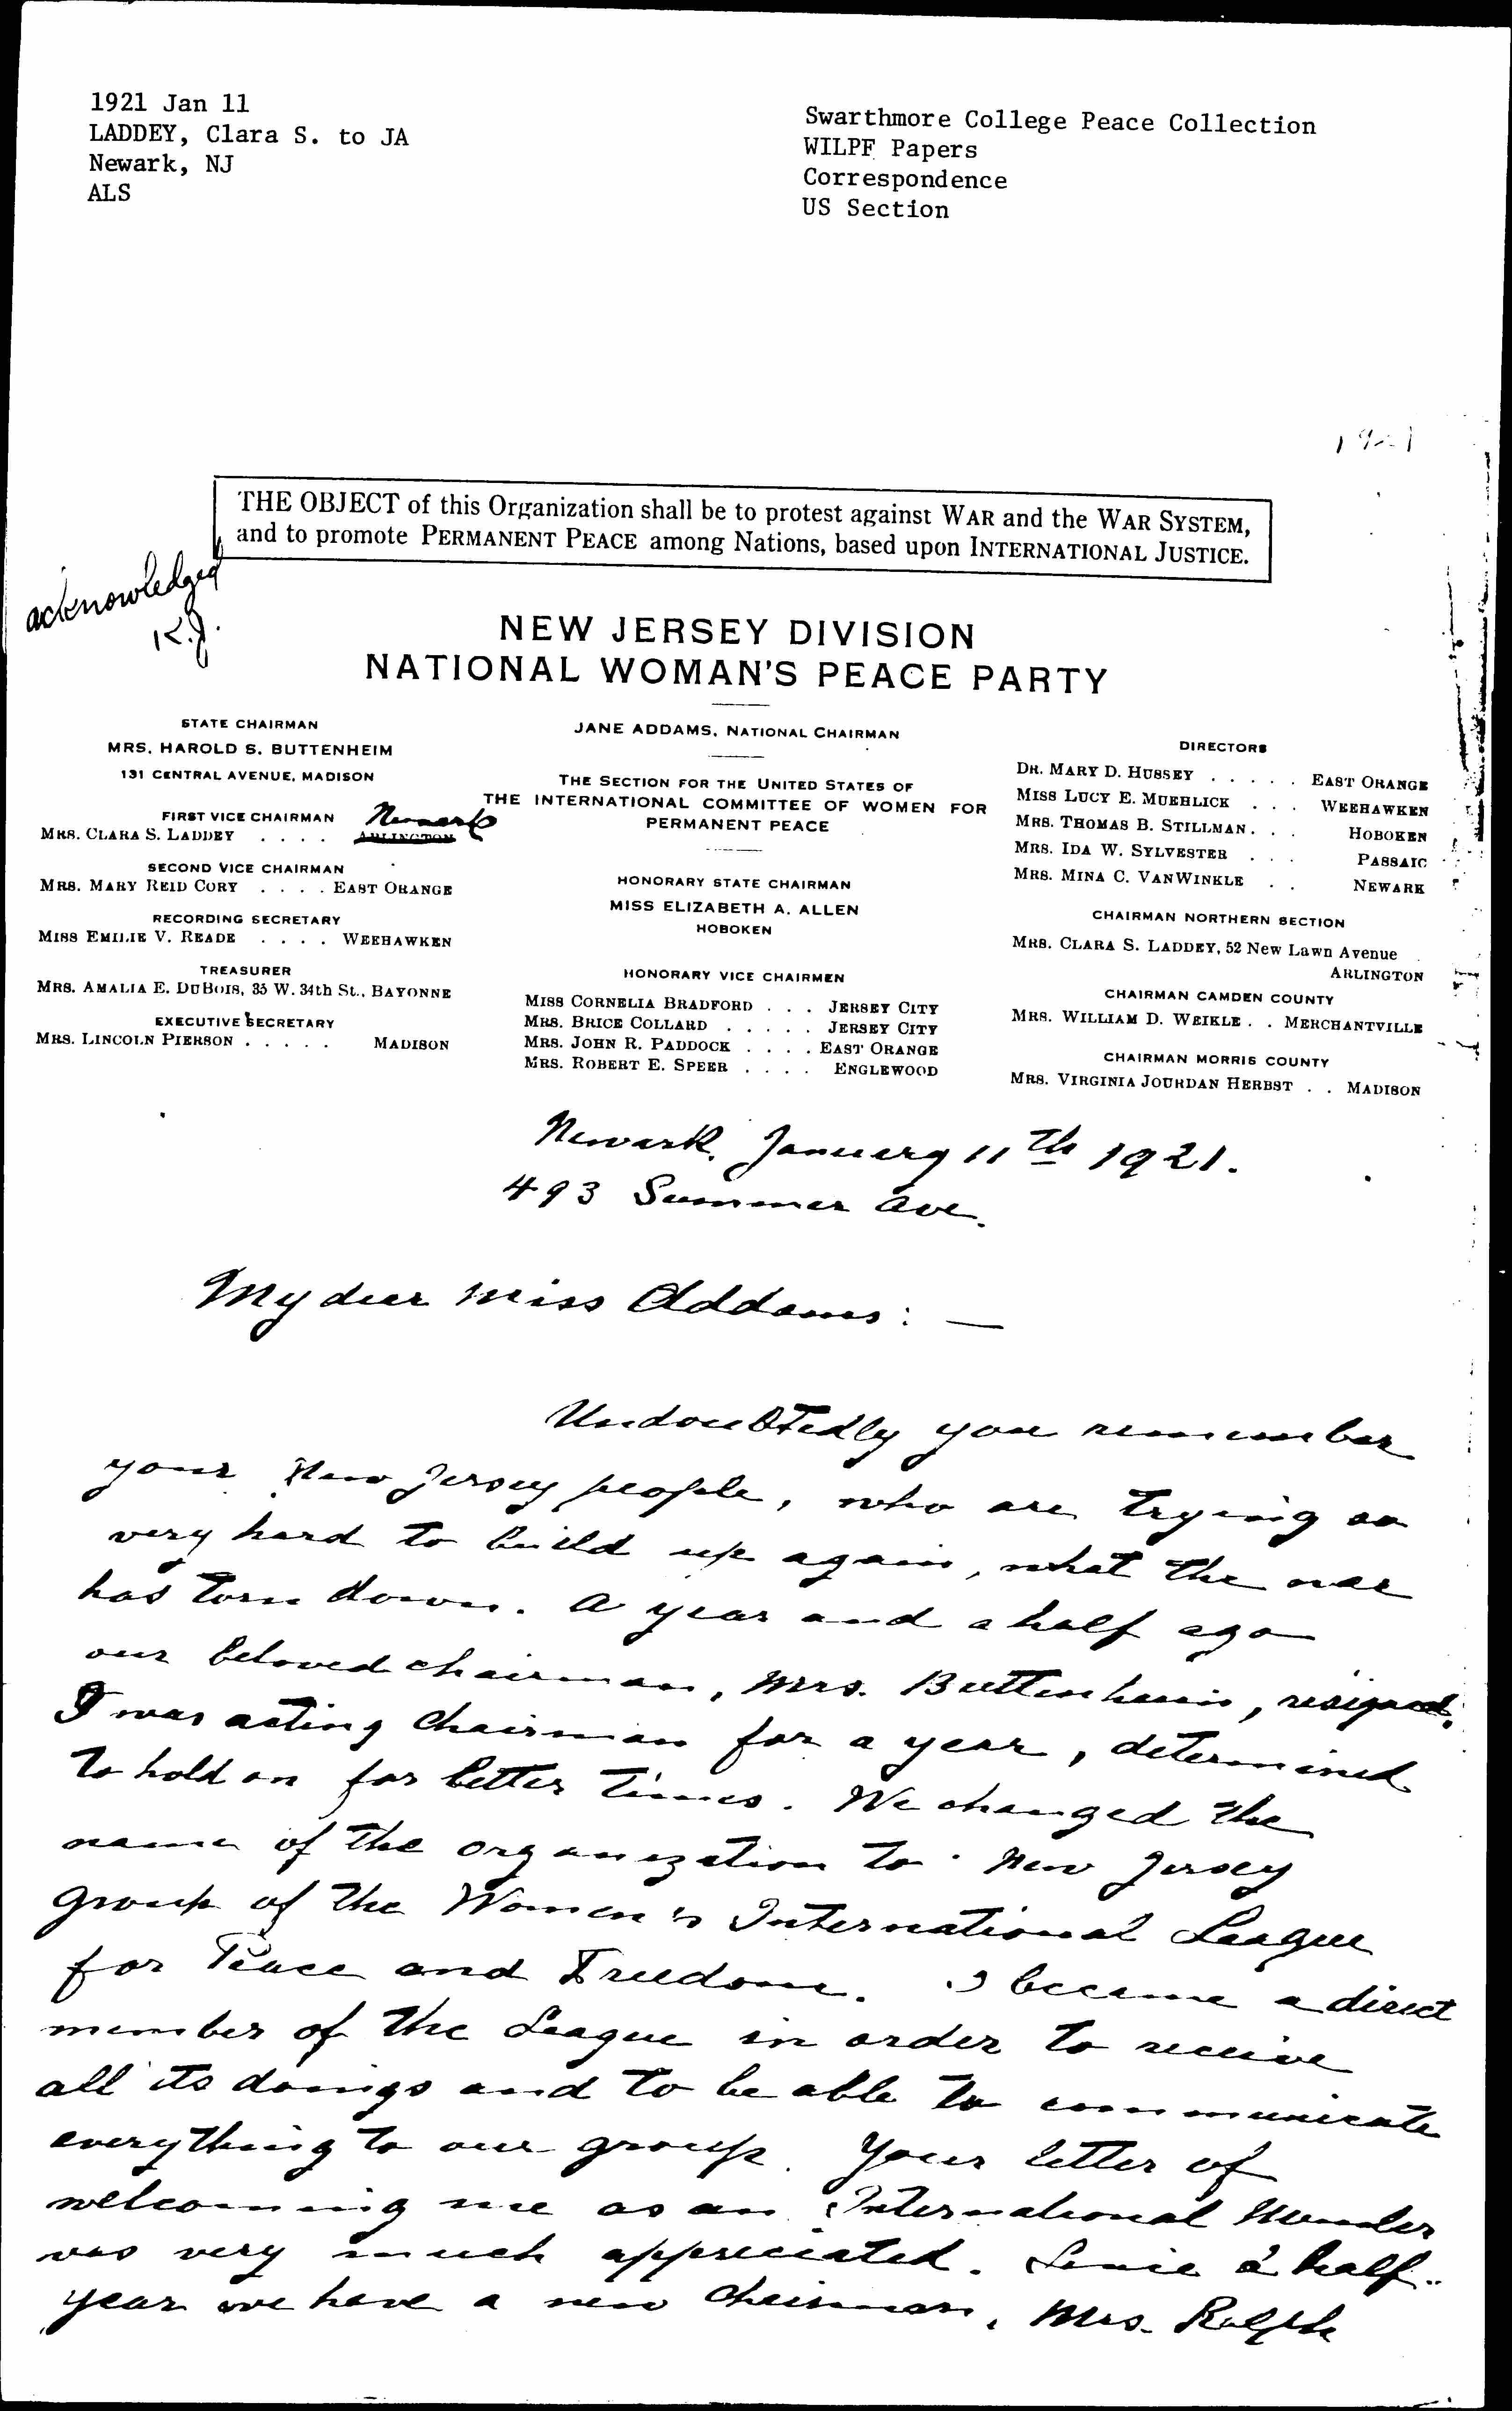 1921 Jan 11
LADDEY, Clara S. to JA
Newark, NJ
ALS
Swarthmore College Peace Collection
WILPF Papers
Correspondence
US Section
1921
THE OBJECT of this Organization shall be to protest against WAR and the WAR SYSTEM,
and to promote PERMANENT PEACE among Nations, based upon INTERNATIONAL JUSTICE.
acknowledged
K.J.
NEW JERSEY DIVISION
NATIONAL WOMAN'S PEACE PARTY
STATE CHAIRMAN
MRS. HAROLD S. BUTTENHEIM
131 CENTRAL AVENUE, MADISON
FIRST VICE CHAIRMAN
Newark
MRS. CLARA S. LADDEY . . . . ARLINGTON
SECOND VICE CHAIRMAN
MRS. MARY REID CORY . . . . EAST ORANGE
RECORDING SECRETARY
MISS EMILIE V. READE . . . . WEEHAWKEN
TREASURER
MRS. AMALIA E. DUBOIS, 35 W. 34th St., BAYONNE
EXECUTIVE SECRETARY
MRS. LINCOLN PIERSON . . . . . MADISON
JANE ADDAMS, NATIONAL CHAIRMAN
THE SECTION FOR THE UNITED STATES OF
THE INTERNATIONAL COMMITTEE OF WOMEN FOR
PERMANENT PEACE
HONORARY STATE CHAIRMAN
MISS ELIZABETH A. ALLEN
HOBOKEN
HONORARY VICE CHAIRMEN
MISS CORNELIA BRADFORD . . . JERSEY CITY
MRS. BRICE COLLARD . . . . . JERSEY CITY
MRS. JOHN R. PADDOCK . . . . EAST ORANGE
MRS. ROBERT E. SPEER . . . . ENGLEWOOD
DIRECTORS
DR. MARY D. HUSSEY . . . . . EAST ORANGE
MISS LUCY E. MUEHLICK . . . WEEHAWKEN
MRS. THOMAS B. STILLMAN . . . HOBOKEN
MRS. IDA W. SYLVESTER . . . PASSAIC
MRS. MINA C. VANWINKLE . . NEWARK
CHAIRMAN NORTHERN SECTION
MRS. CLARA S. LADDEY, 52 New Lawn Avenue
ARLINGTON
CHAIRMAN CAMDEN COUNTY
MRS. WILLIAM D. WEIKLE . . MERCHANTVILLE
CHAIRMAN MORRIS COUNTY
MRS. VIRGINIA JOURDAN HERBST . . MADISON
Newark, January 11th 1921.
493 Summer Ave.
My dear Miss Addams: —
Undoubtedly you remember
your New Jersey people, who are trying so
very hard to build up again, what the war
has torn down. A year and a half ago
our beloved chairman, Mrs. Buttenheim, resigned.
I was acting chairman for a year, determined
to hold on for better times. We changed the
name of the organization to New Jersey
group of the Women's International League
for Peace and Freedom. I became a direct
member of the League in order to receive
all its doings and to be able to communicate
everything to our group. Your letter of
welcoming me as an International Member
was very much appreciated. Since a half-
year we have a new chairman, Mrs. Ralph